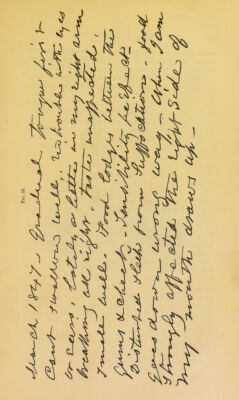 March 1847 - Gradual tongue first
Cant swallow well. No trouble with eyes
or ears, lately a letter in my right arm
breathing all right, taste unaffected,
smell well. Food lodges between the
gums & cheek - Sensibility perfect -
Disturbed sleep from suffocations - food
goes down wrong way - when I am
strongly affected the right side of
my mouth draws up -
FIG. 33.